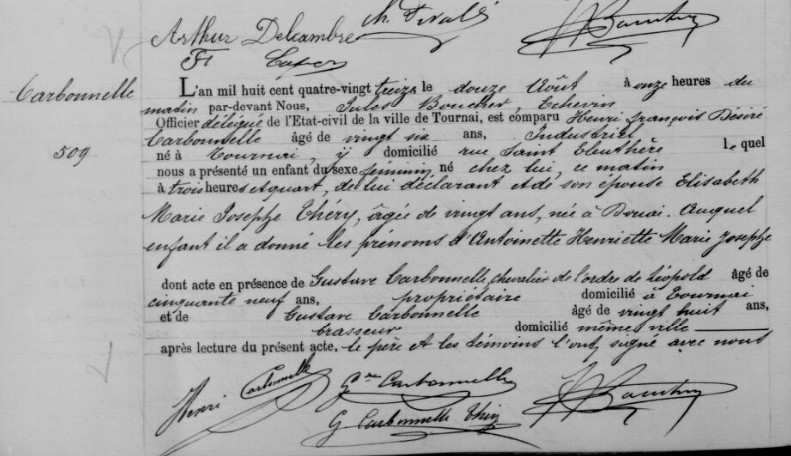 Arthur Delcambre
Carbonnelle
509
L'an mil huit cent quatre-vingt treize le douze Août à onze heures du
matin par-devant Nous, Jules Boucher, Echevin
Officier délégué de l'Etat-civil de la ville de Tournai, est comparu Henri François Désiré
Carbonnelle âgé de vingt six ans, Industriel,
né à Tournai, y domicilié rue Saint Eleuthère lequel
nous a présenté un enfant du sexe féminin, né chez lui, ce matin
à trois heures et quart, de lui déclarant et de son épouse Elisabeth
Marie Josephe Théry, âgée de vingt ans, née à Douai. Auquel
enfant il a donné les prénoms d'Antoinette Henriette Marie Josephe
dont acte en présence de Gustave Carbonnelle, chevalier de l'ordre de Léopold âgé de
cinquante neuf ans, propriétaire domicilié à Tournai
et de Gustave Carbonnelle âgé de vingt huit ans,
brasseur domicilié même ville
après lecture du présent acte, le père et les témoins l'ont signé avec nous
Henri Carbonnelle Gve Carbonnelle
G Carbonnelle Théry